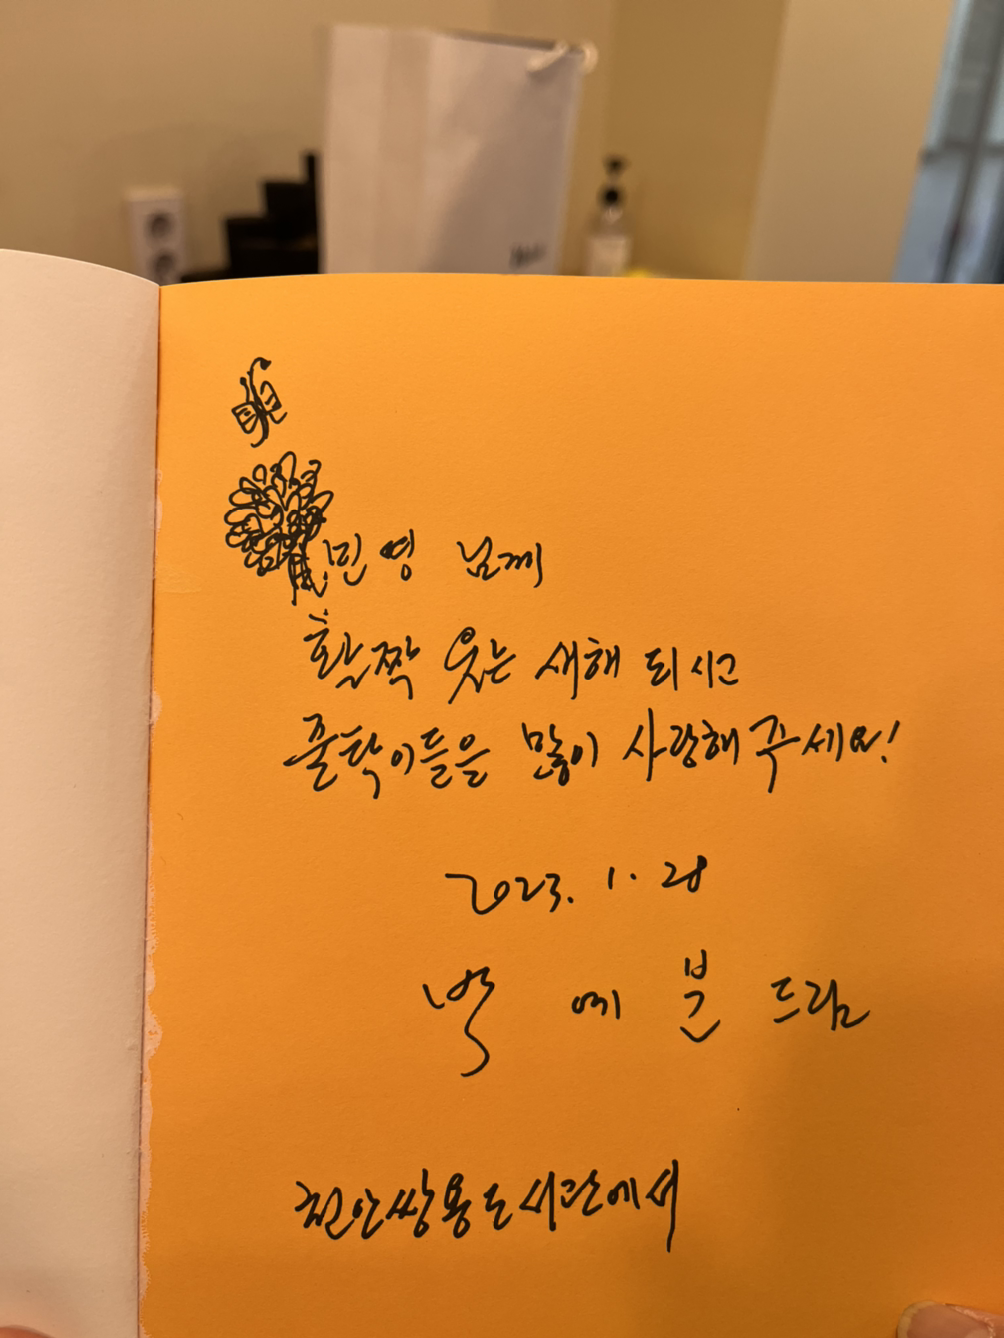 민영 님께
활짝 웃는 새해 되시고
줄탁이들을 많이 사랑해 주세요!
2023. 1. 28
박 예 분 드림
천안쌍용도서관에서